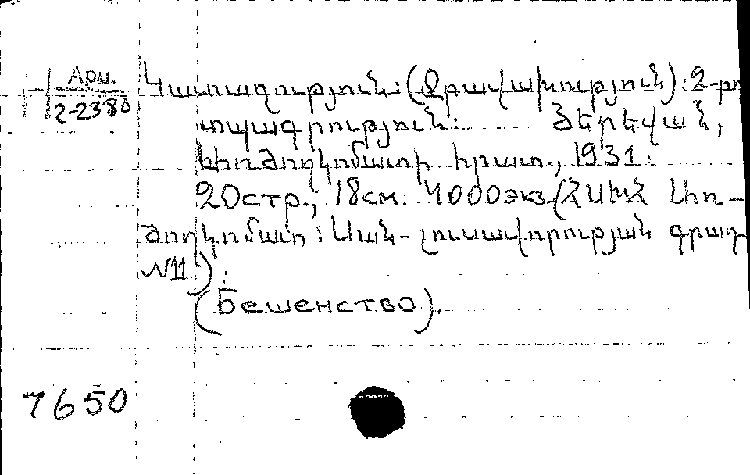 Арм.
2-2380
Կատաղություն: (Ջրավախություն): 2-րդ
տպագրություն: Յերեվան,
Լեռժողկոմատի հրատ., 1931:
20стр., 18см. 4000экз. (ՀՍԽՀ
ժողկոմատ: Սան-լուսավորության գրադ
N11.):
(Бешенство).
7650